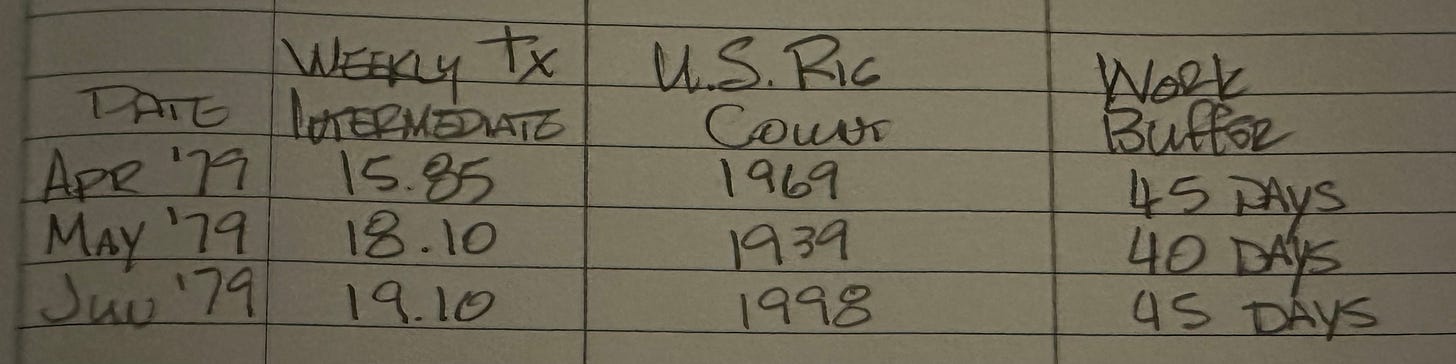 WEEKLY TX U.S. RIG WORK
DATE INTERMEDIATE COUNT BUFFER
APR '79 15.85 1969 45 DAYS
MAY '79 18.10 1939 40 DAYS
JUN '79 19.10 1998 45 DAYS